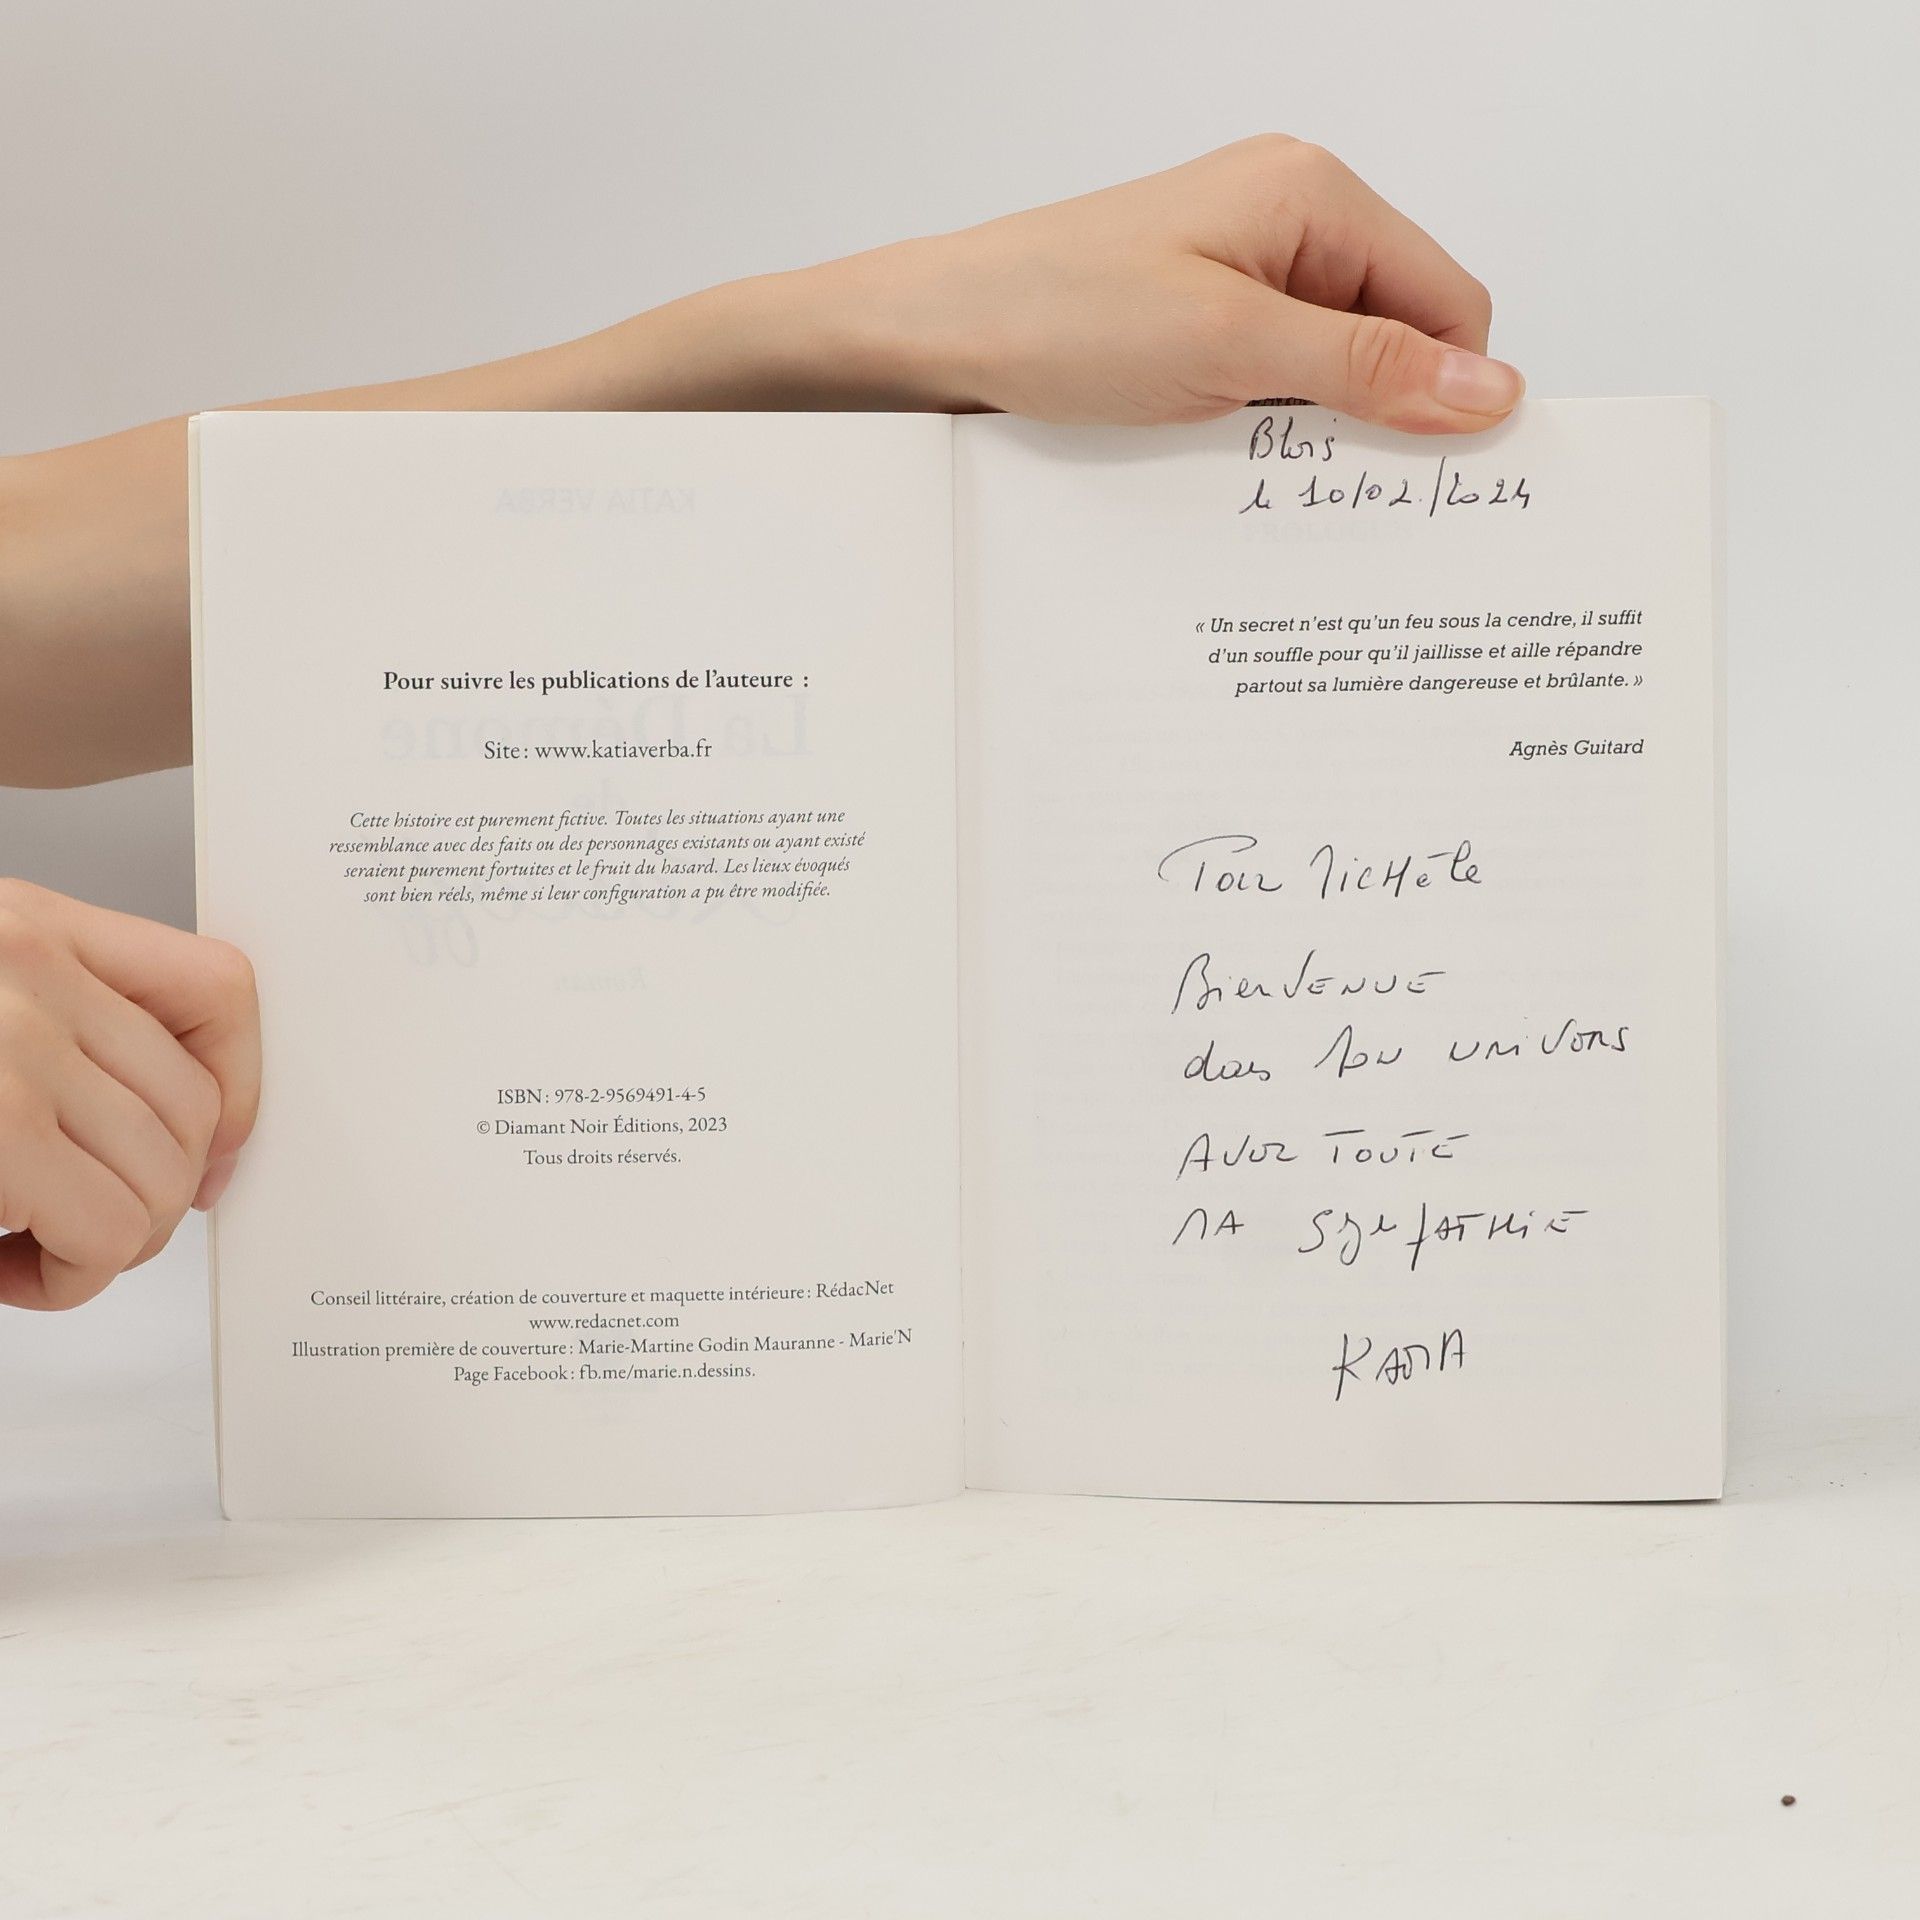 Pour suivre les publications de l'auteure :
Site : www.katiaverba.fr
Cette histoire est purement fictive. Toutes les situations ayant une
ressemblance avec des faits ou des personnages existants ou ayant existé
seraient purement fortuites et le fruit du hasard. Les lieux évoqués
sont bien réels, même si leur configuration a pu être modifiée.
ISBN : 978-2-9569491-4-5
© Diamant Noir Éditions, 2023
Tous droits réservés.
Conseil littéraire, création de couverture et maquette intérieure : RédacNet
www.redacnet.com
Illustration première de couverture : Marie-Martine Godin Mauranne - Marie'N
Page Facebook : fb.me/marie.n.dessins.
Blois
le 10/02/2024
« Un secret n'est qu'un feu sous la cendre, il suffit
d'un souffle pour qu'il jaillisse et aille répandre
partout sa lumière dangereuse et brûlante. »
Agnès Guitard
Pour Michèle
Bienvenue
dans mon univers
Avec toute
ma sympathie
Katia